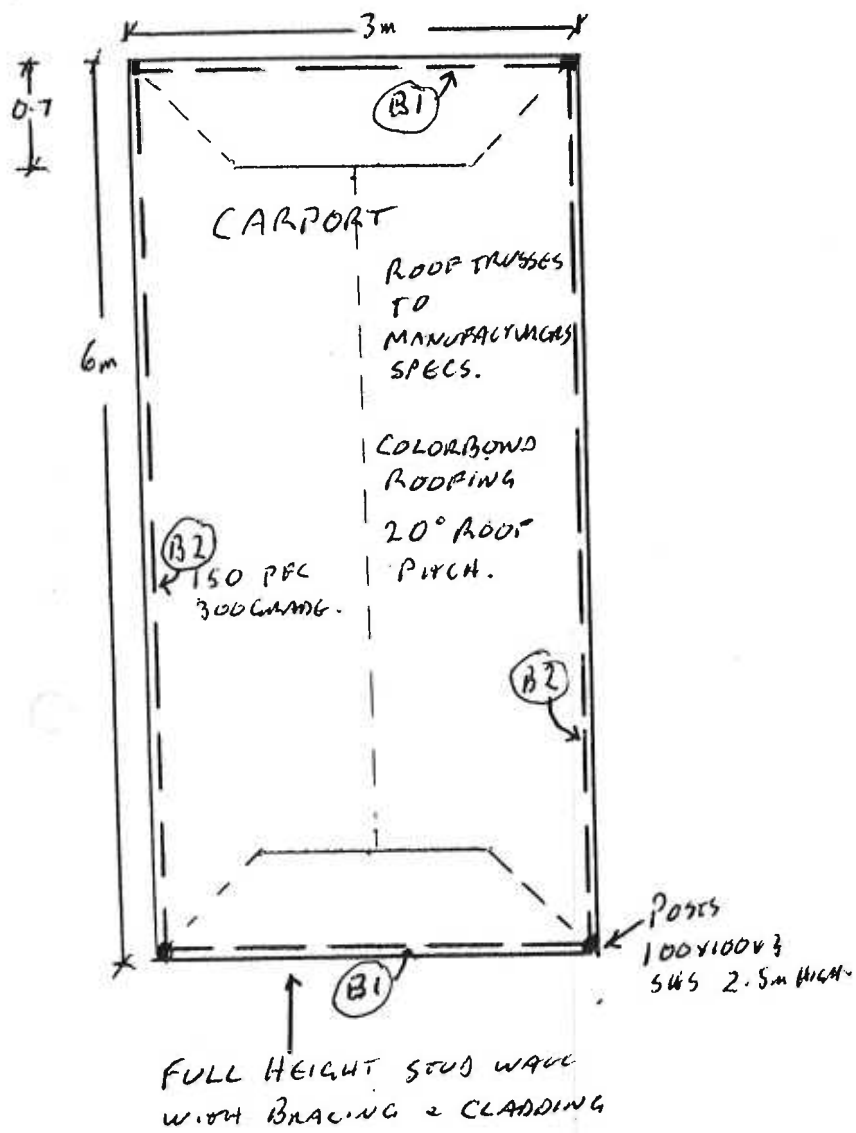 3m
0.7
B1
CARPORT
ROOF TRUSSES
TO
MANUFACTURERS
SPECS.
6m
COLORBOND
ROOFING
20° ROOF
PITCH.
B2
150 PFC
300 GRADE.
B2
POSTS
100x100x3
SHS 2.5m HIGH.
B1
FULL HEIGHT STUD WALL
WITH BRACING & CLADDING